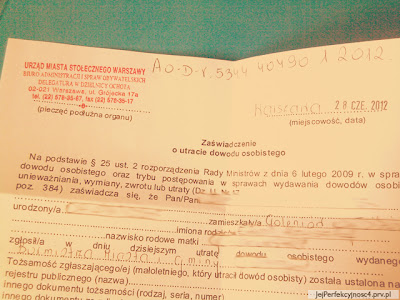 URZĄD MIASTA STOŁECZNEGO WARSZAWY
BIURO ADMINISTRACJI I SPRAW OBYWATELSKICH
DELEGATURA W DZIELNICY OCHOTA
02-021 Warszawa, ul. Grójecka 17a
tel. (22) 578-35-67, fax (22) 578-35-17
(pieczęć podłużna organu)
AO-D-V. 5344 40490 1 2012.
Warszawa 28 CZE. 2012
(miejscowość, data)
Zaświadczenie
o utracie dowodu osobistego
Na podstawie § 25 ust. 2 rozporządzenia Rady Ministrów z dnia 6 lutego 2009 r. w spra
dowodu osobistego oraz trybu postępowania w sprawach wydawania dowodów osobis
unieważniania, wymiany, zwrotu lub utraty (Dz. U. Nr 17
poz. 384) zaświadcza się, że Pan/Pani
urodzony/a
zamieszkały/a
imiona rodziców
nazwisko rodowe matki
zgłosił/a w dniu dzisiejszym utratę dowodu osobistego wydanego
Burmistrz Miasta i Gminy
Tożsamość zgłaszającego/ej (małoletniego, który utracił dowód osobisty) została ustalona na
rejestru publicznego (nazwa)
innego dokumentu tożsamości (rodzaj, seria, numer)
innego dokumentu
JejPerfekcyjnosc4.prv.pl